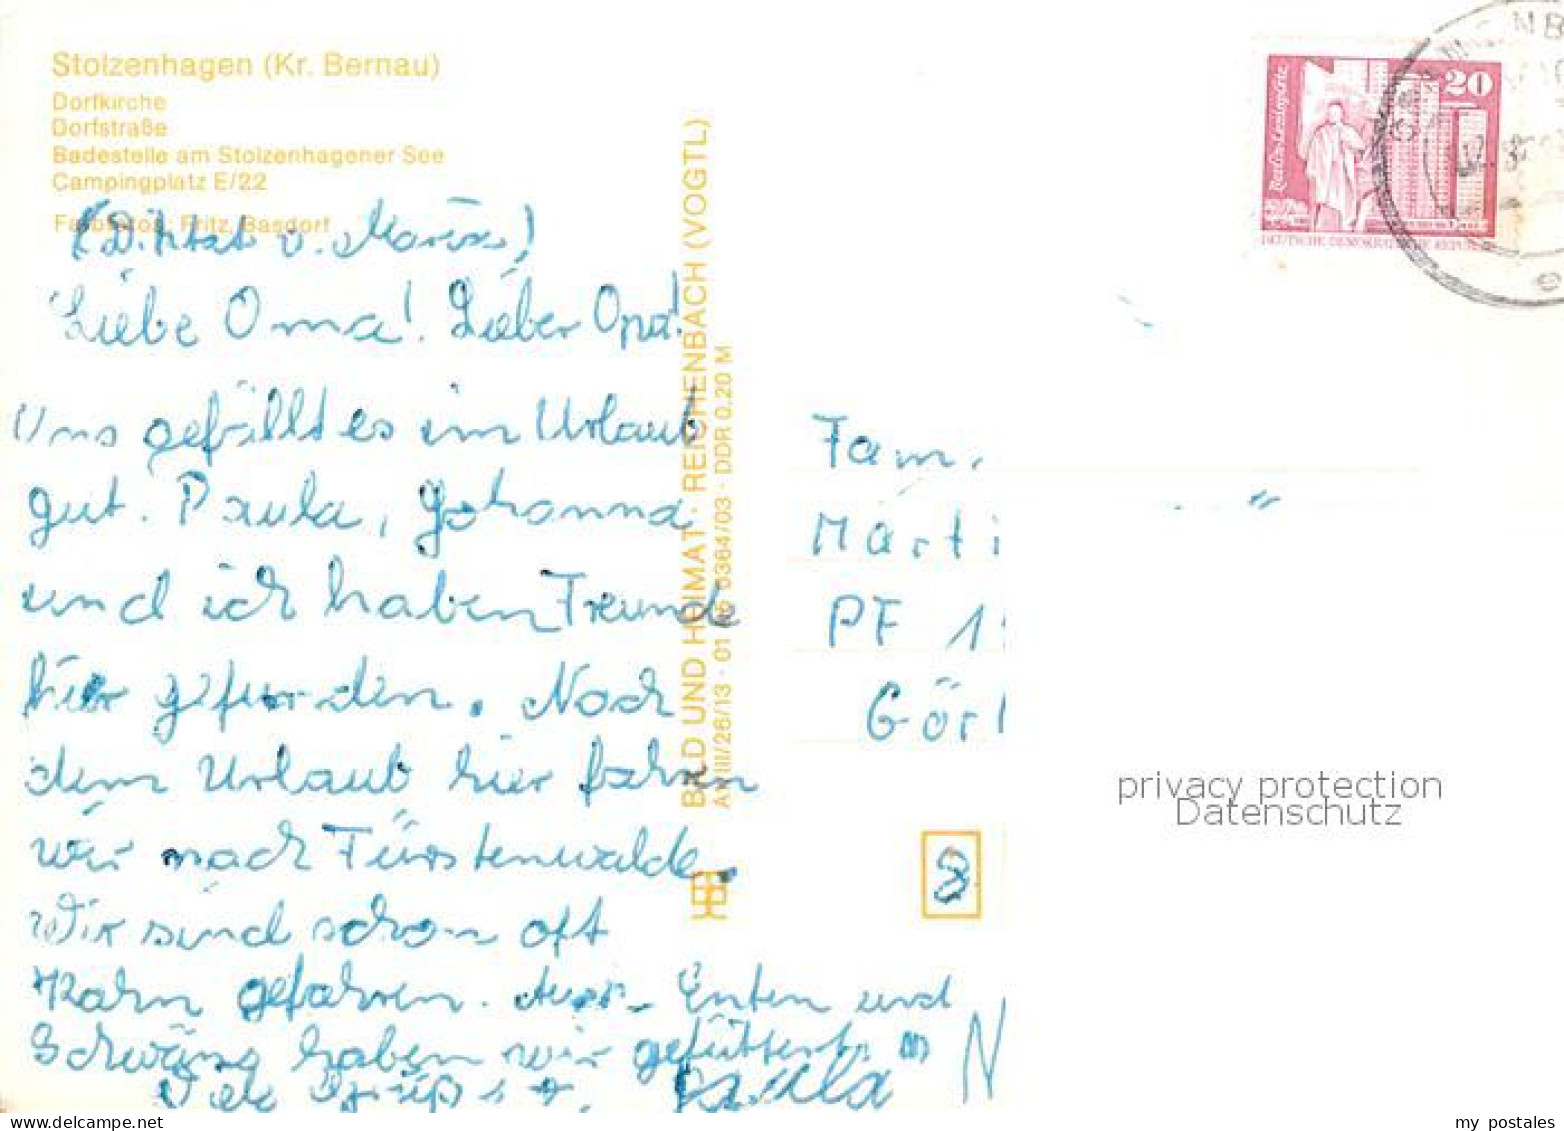 Stolzenhagen (Kr. Bernau)
Dorfkirche
Dorfstraße
Badestelle am Stolzenhagener See
Campingplatz E/22
Farbfotos: Fritz, Basdorf
(Diktat v.
Liebe Oma! Lieber Opa!
Uns gefällt es im Urlaub
gut. Paula, Johanna
und ich haben Freunde
hier gefunden. Nach
dem Urlaub hier fahren
wir nach Fürstenwalde.
Wir sind schon oft
Kahn gefahren. Enten und
Schwäne haben wir gefüttert.
Viele Grüße Paula
BILD UND HEIMAT · REICHENBACH (VOGTL)
A1/III/26/13 · 01 0364/03 · DDR 0,20 M
Berlin-Leninplatz
20
DEUTSCHE DEMOKRATISCHE REPUBLIK
Fam.
Marti
PF 1
Görl
8
privacy protection
Datenschutz
delcampe.net
my_postales